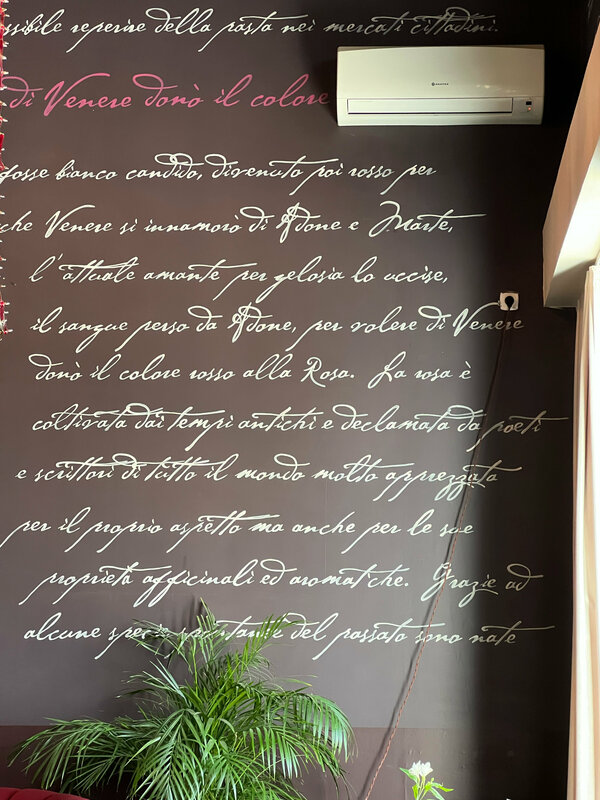 ssibile reperire della pasta nei mercati cittadini.
di Venere donò il colore
fosse bianco candido, divenuto poi rosso per
che Venere si innamorò di Adone e Marte,
l'attuale amante per gelosia lo uccise,
il sangue perso da Adone, per volere di Venere
donò il colore rosso alla Rosa. La rosa è
coltivata dai tempi antichi e declamata da poeti
e scrittori di tutto il mondo molto apprezzata
per il proprio aspetto ma anche per le sue
proprietà officinali ed aromatiche. Grazie ad
alcune specie spontanee del passato sono nate